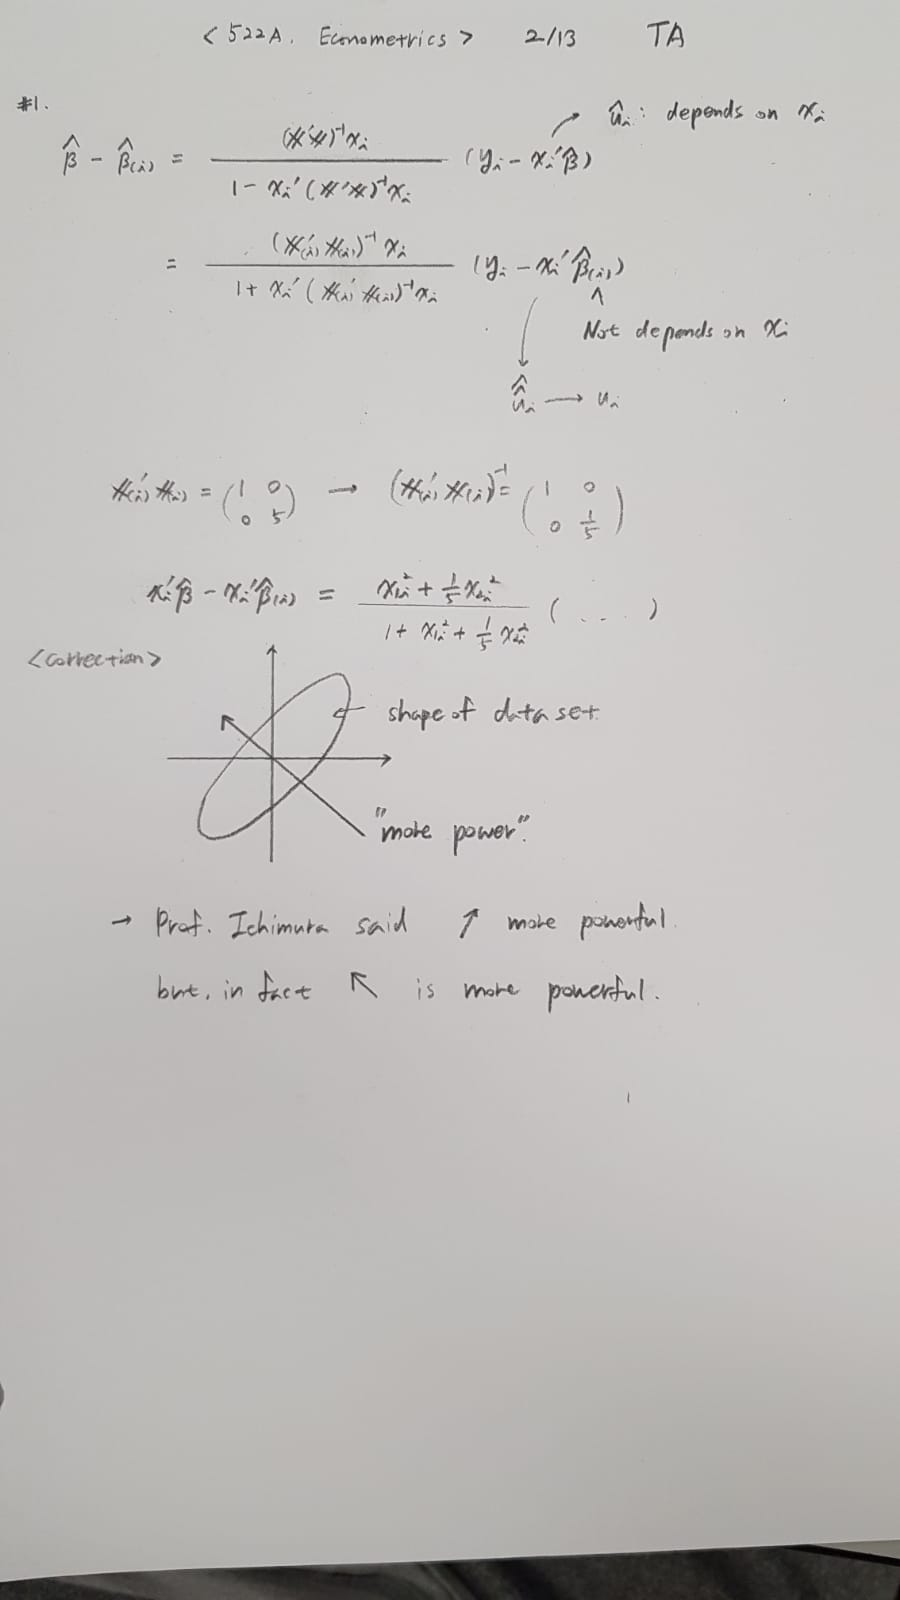 < 522A. Econometrics > 2/13 TA
#1.
β̂ - β̂(i) = (X'X)⁻¹xᵢ / (1 - xᵢ'(X'X)⁻¹xᵢ) (yᵢ - xᵢ'β̂) → ûᵢ : depends on xᵢ
= (X(i)'X(i))⁻¹xᵢ / (1 + xᵢ'(X(i)'X(i))⁻¹xᵢ) (yᵢ - xᵢ'β̂(i))
Not depends on xᵢ
û̂ᵢ → uᵢ
X(i)'X(i) = (1 0; 0 5) → (X(i)'X(i))⁻¹ = (1 0; 0 1/5)
xᵢ'β̂ - xᵢ'β̂(i) = (x₁ᵢ² + 1/5 x₂ᵢ²) / (1 + x₁ᵢ² + 1/5 x₂ᵢ²) ( ... )
<correction>
← shape of data set.
"more power".
→ Prof. Ichimura said ↑ more powerful.
but, in fact ↖ is more powerful.